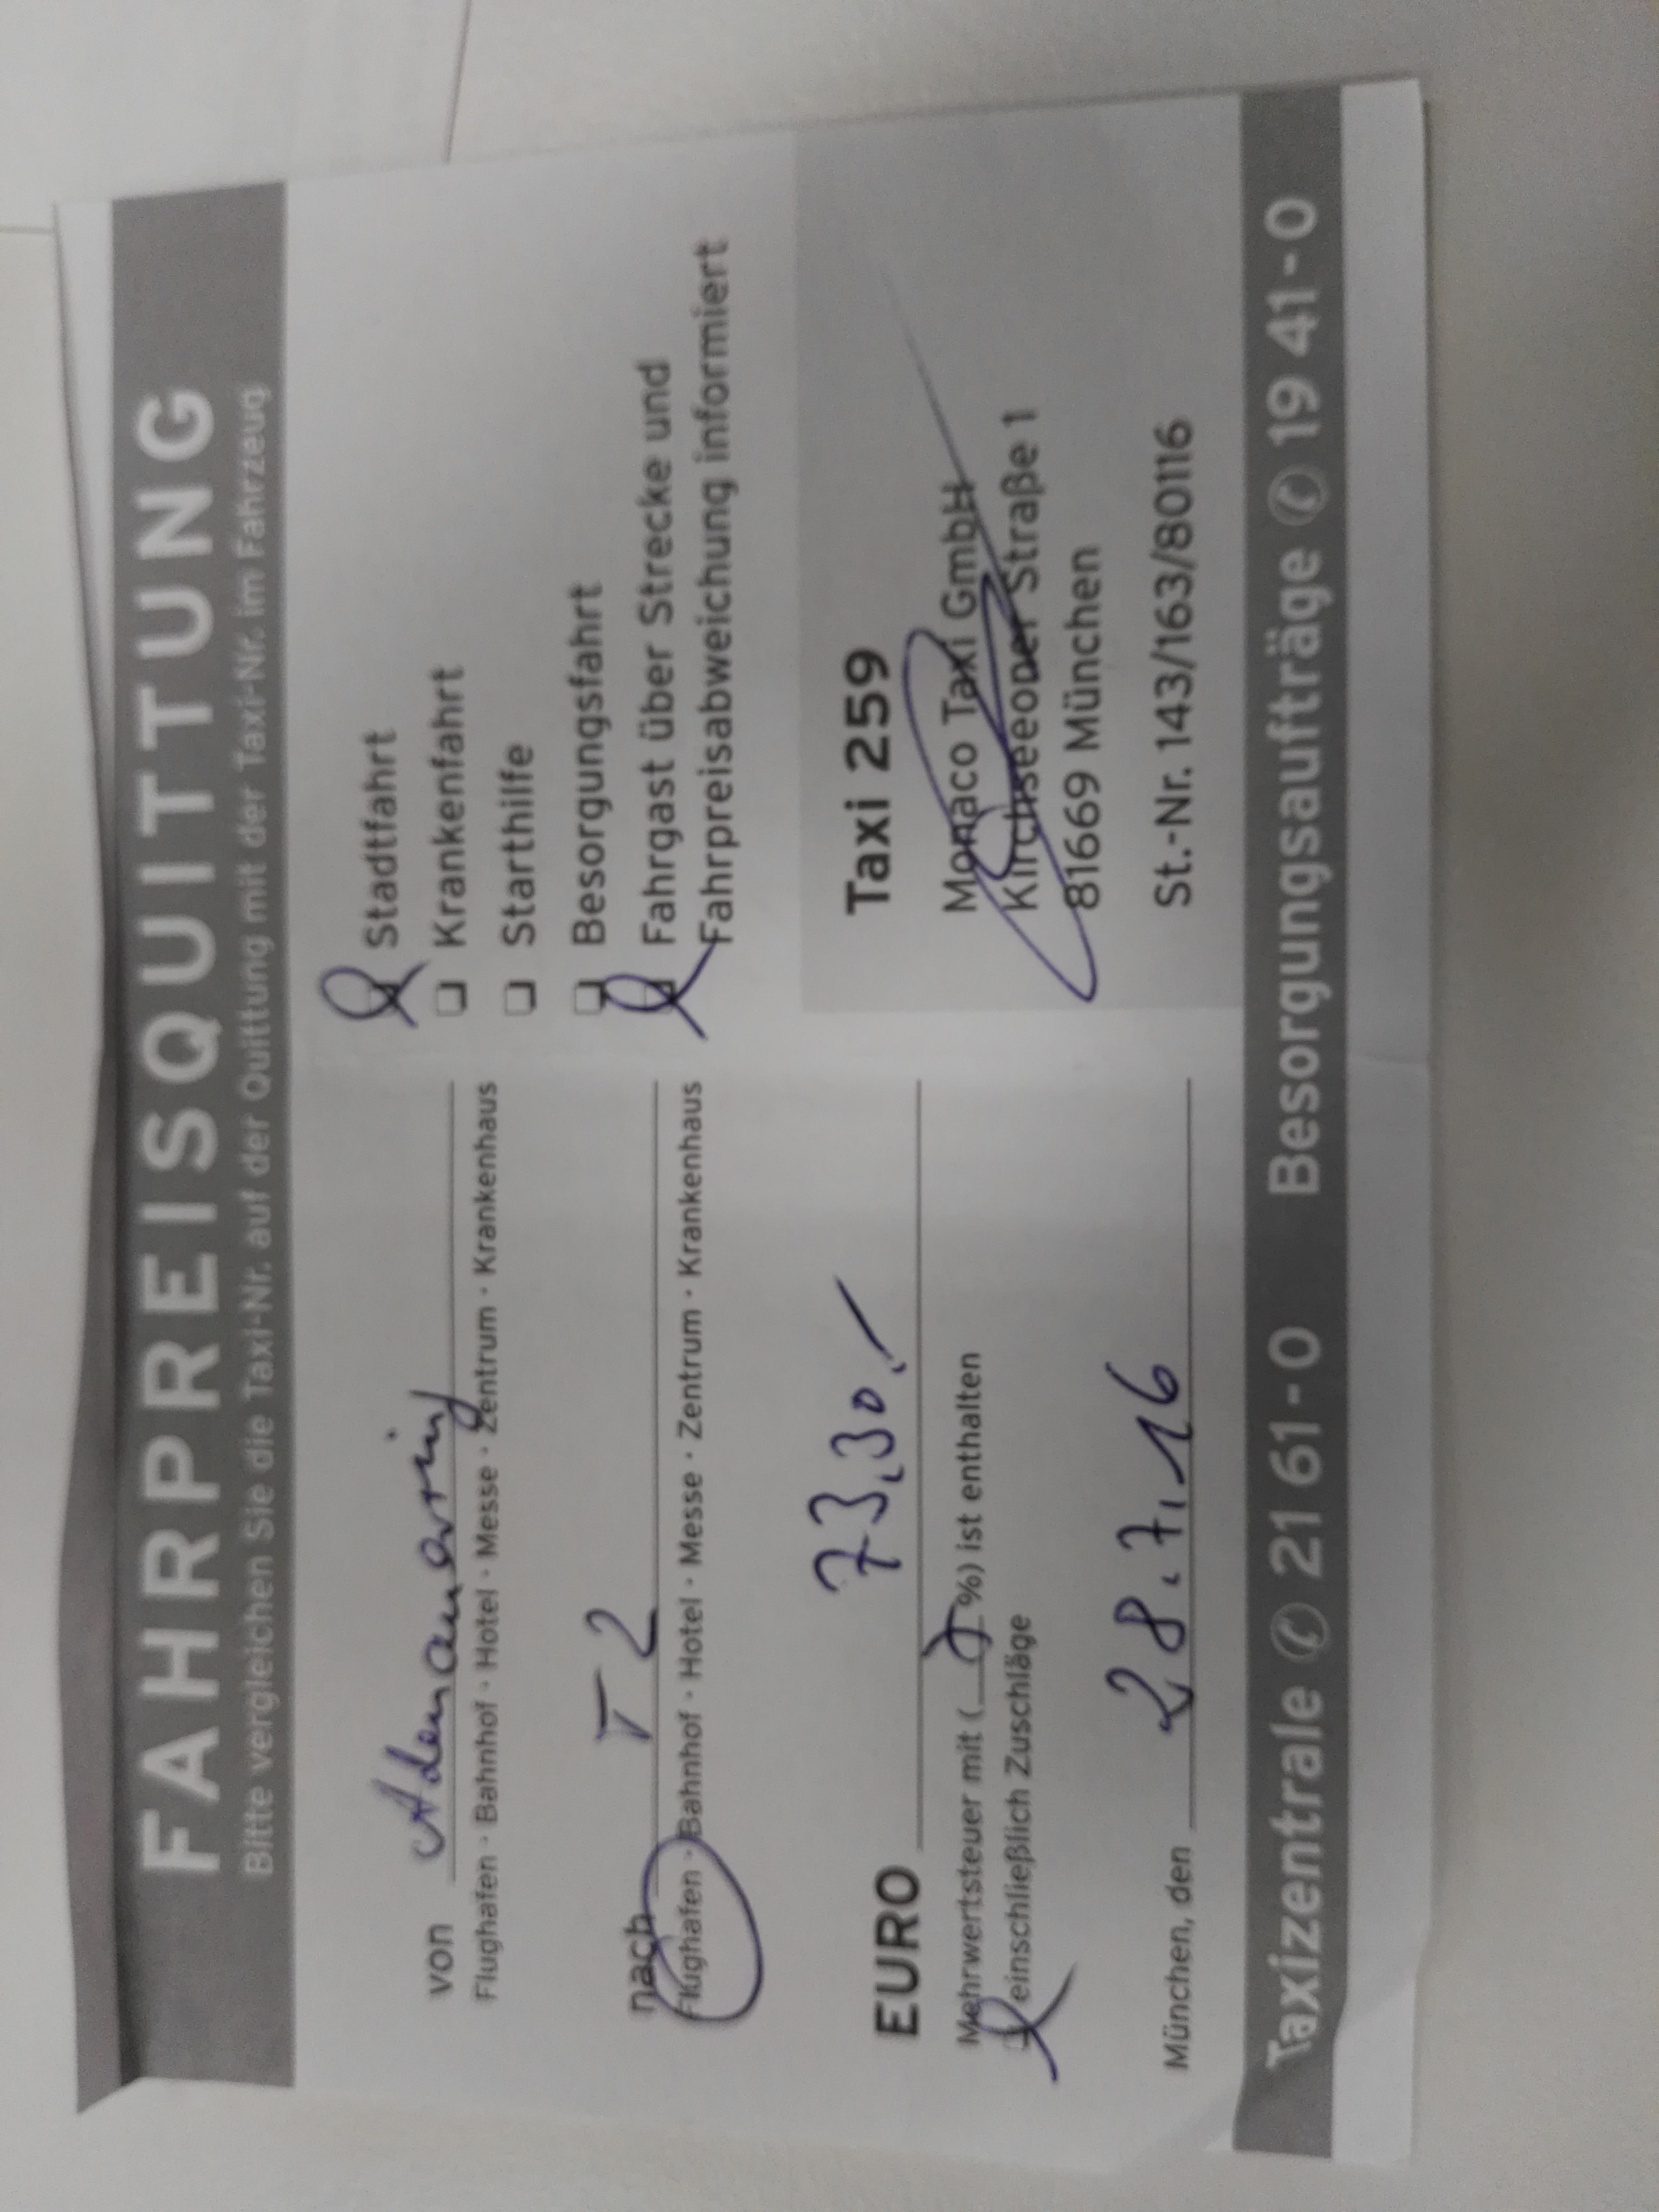 FAHRPREISQUITTUNG
Bitte vergleichen Sie die Taxi-Nr. auf der Quittung mit der Taxi-Nr. im Fahrzeug
von Adenauerring
Flughafen · Bahnhof · Hotel · Messe · Zentrum · Krankenhaus
nach T2
Flughafen · Bahnhof · Hotel · Messe · Zentrum · Krankenhaus
EURO 73,30
Mehrwertsteuer mit ( %) ist enthalten
einschließlich Zuschläge
München, den 28.7.16
Stadtfahrt
Krankenfahrt
Starthilfe
Besorgungsfahrt
Fahrgast über Strecke und
Fahrpreisabweichung informiert
Taxi 259
Monaco Taxi GmbH
Kirchseeoner Straße 1
81669 München
St.-Nr. 143/163/80116
Taxizentrale ✆ 21 61-0 Besorgungsaufträge ✆ 19 41-0